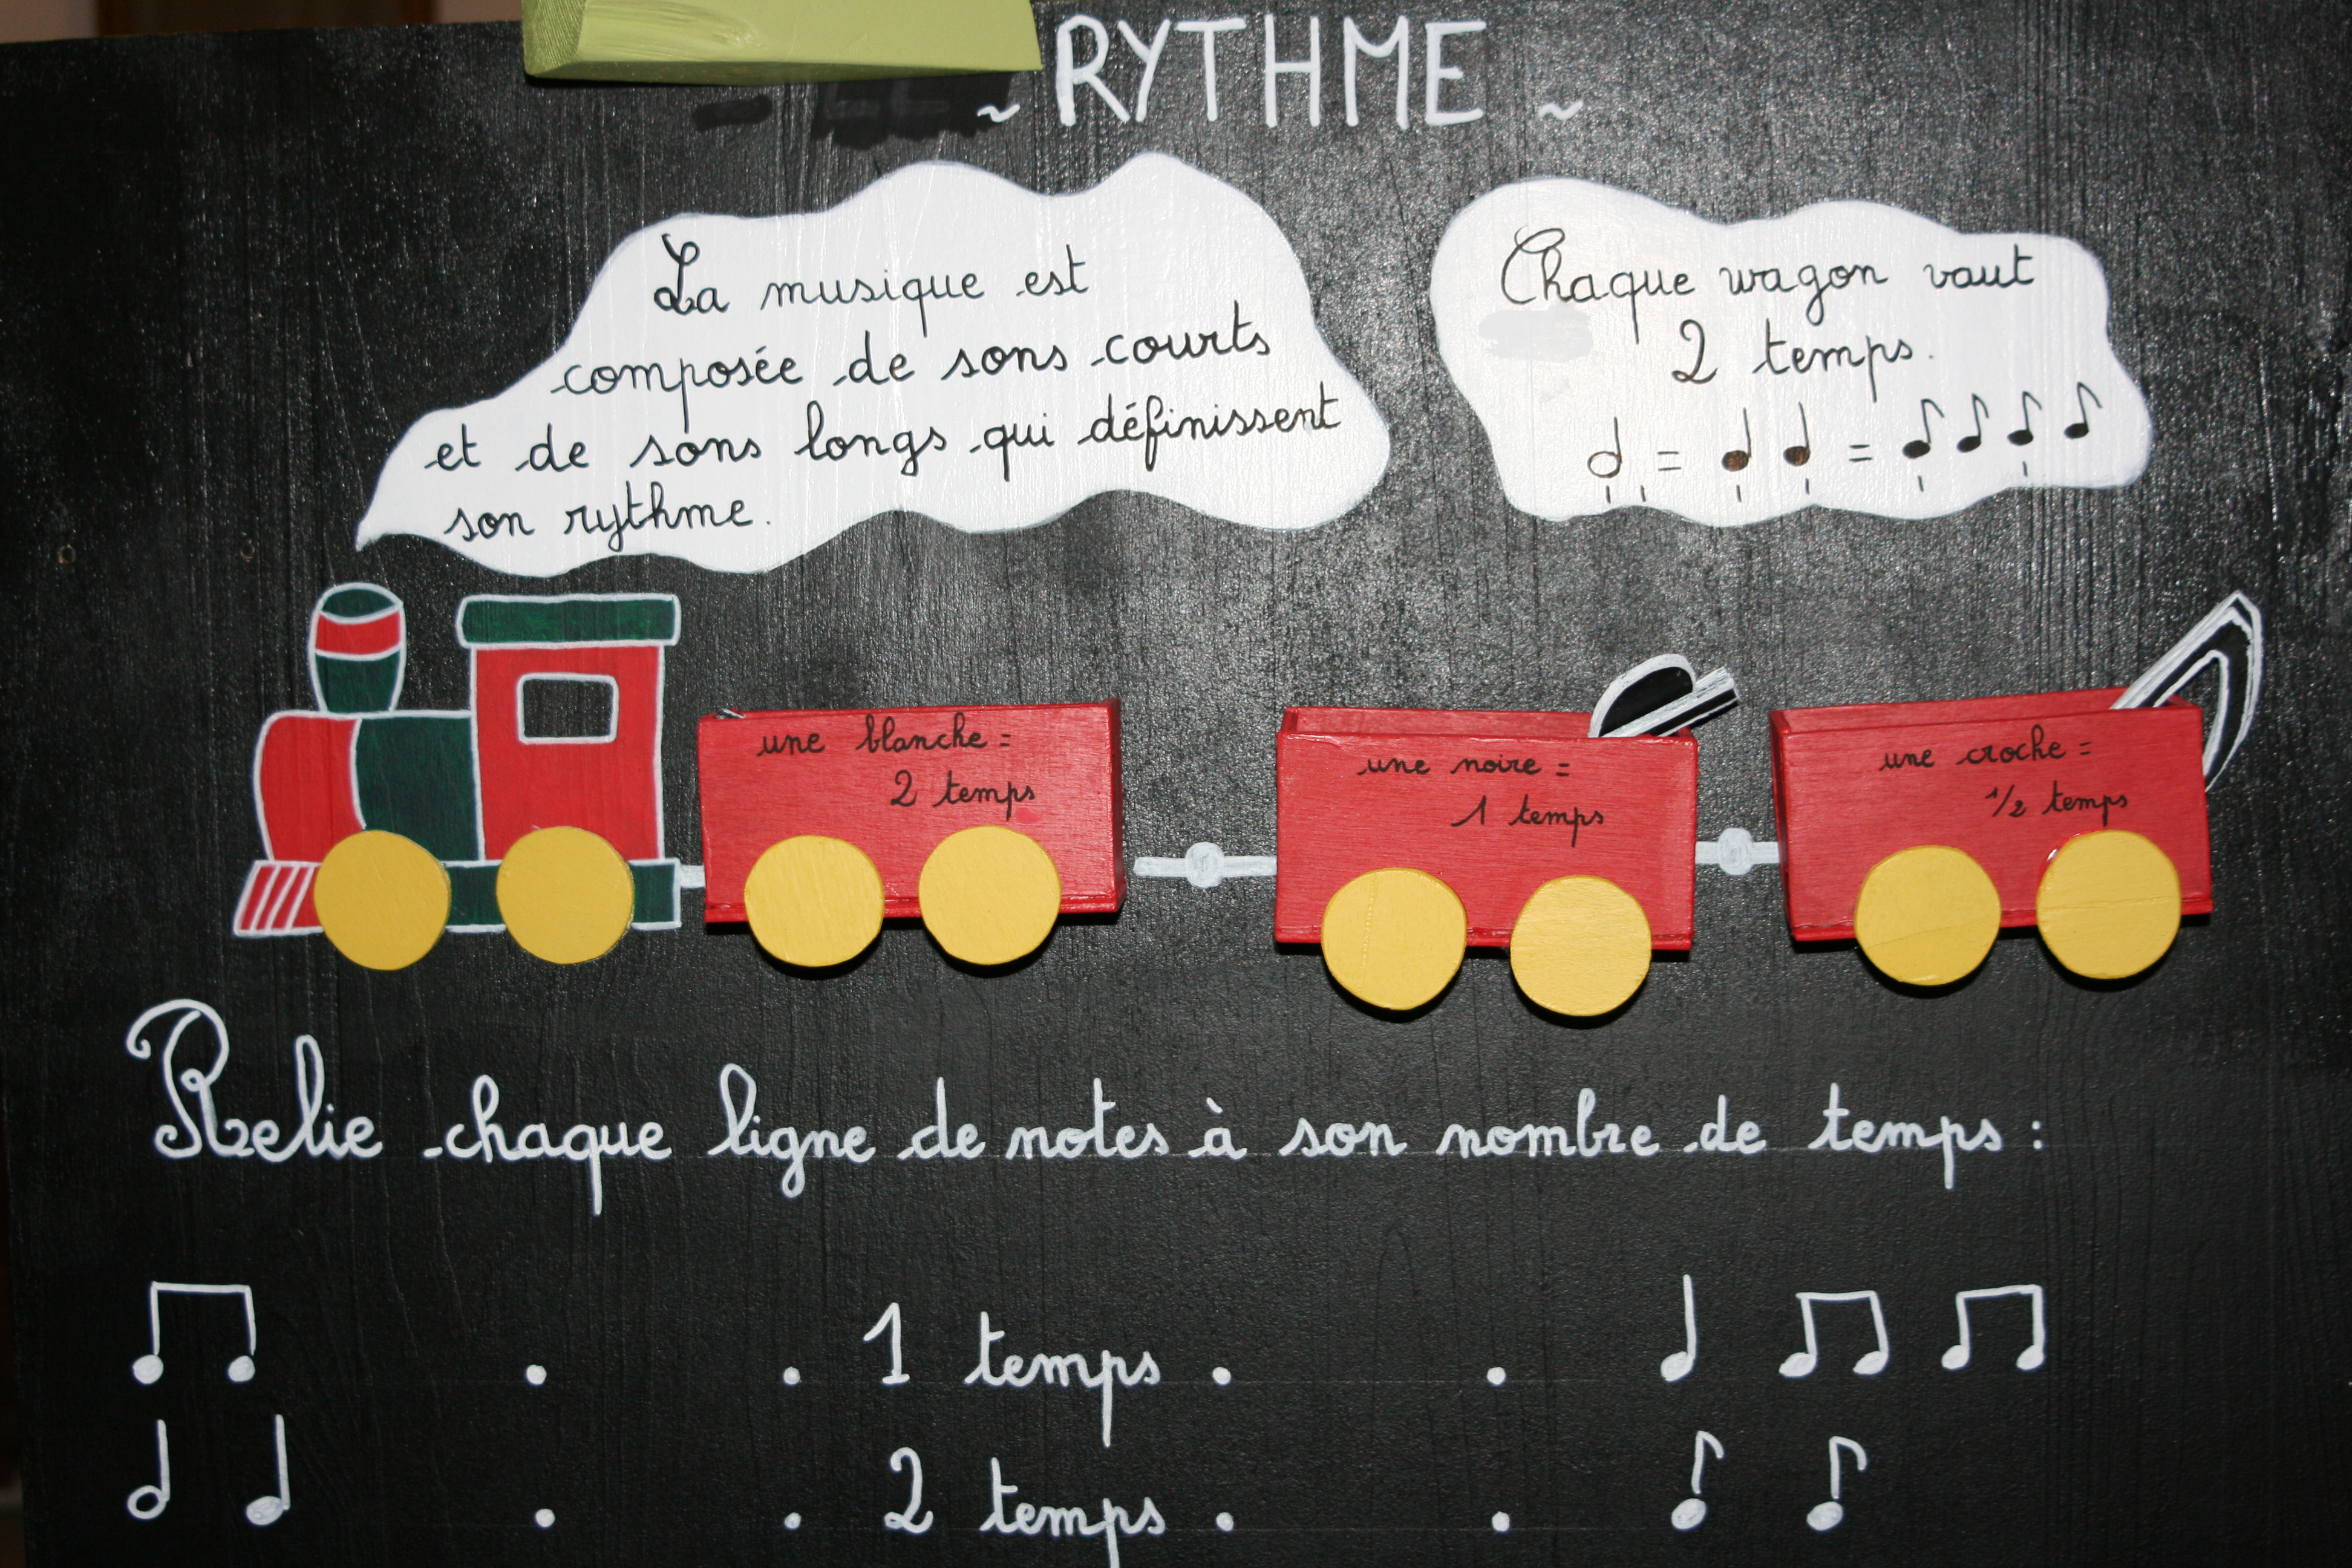 ~ RYTHME ~
La musique est
composée de sons courts
et de sons longs qui définissent
son rythme.
Chaque wagon vaut
2 temps.
= =
une blanche =
2 temps
une noire =
1 temps
une croche =
1/2 temps
Relie chaque ligne de notes à son nombre de temps :
. . 1 temps . .
. . 2 temps . .